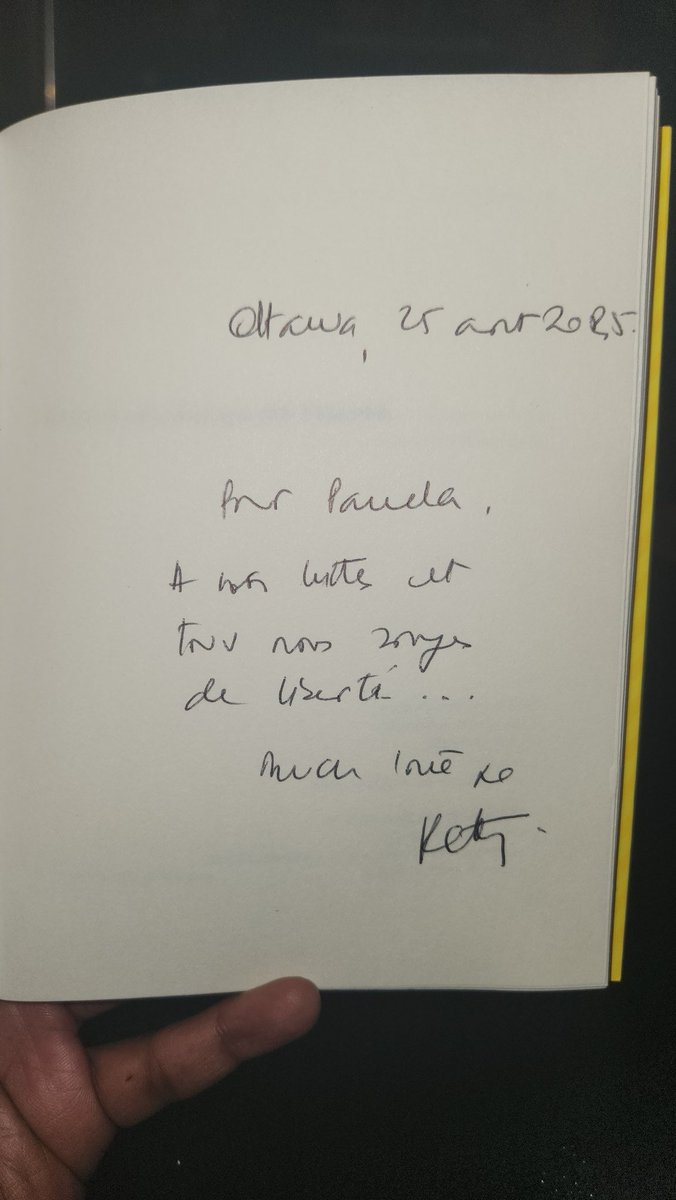 Ottawa, 25 août 2025.
Pour Pamela,
A nos luttes et
tous nos songes
de liberté...
Much love xo
Ketty.